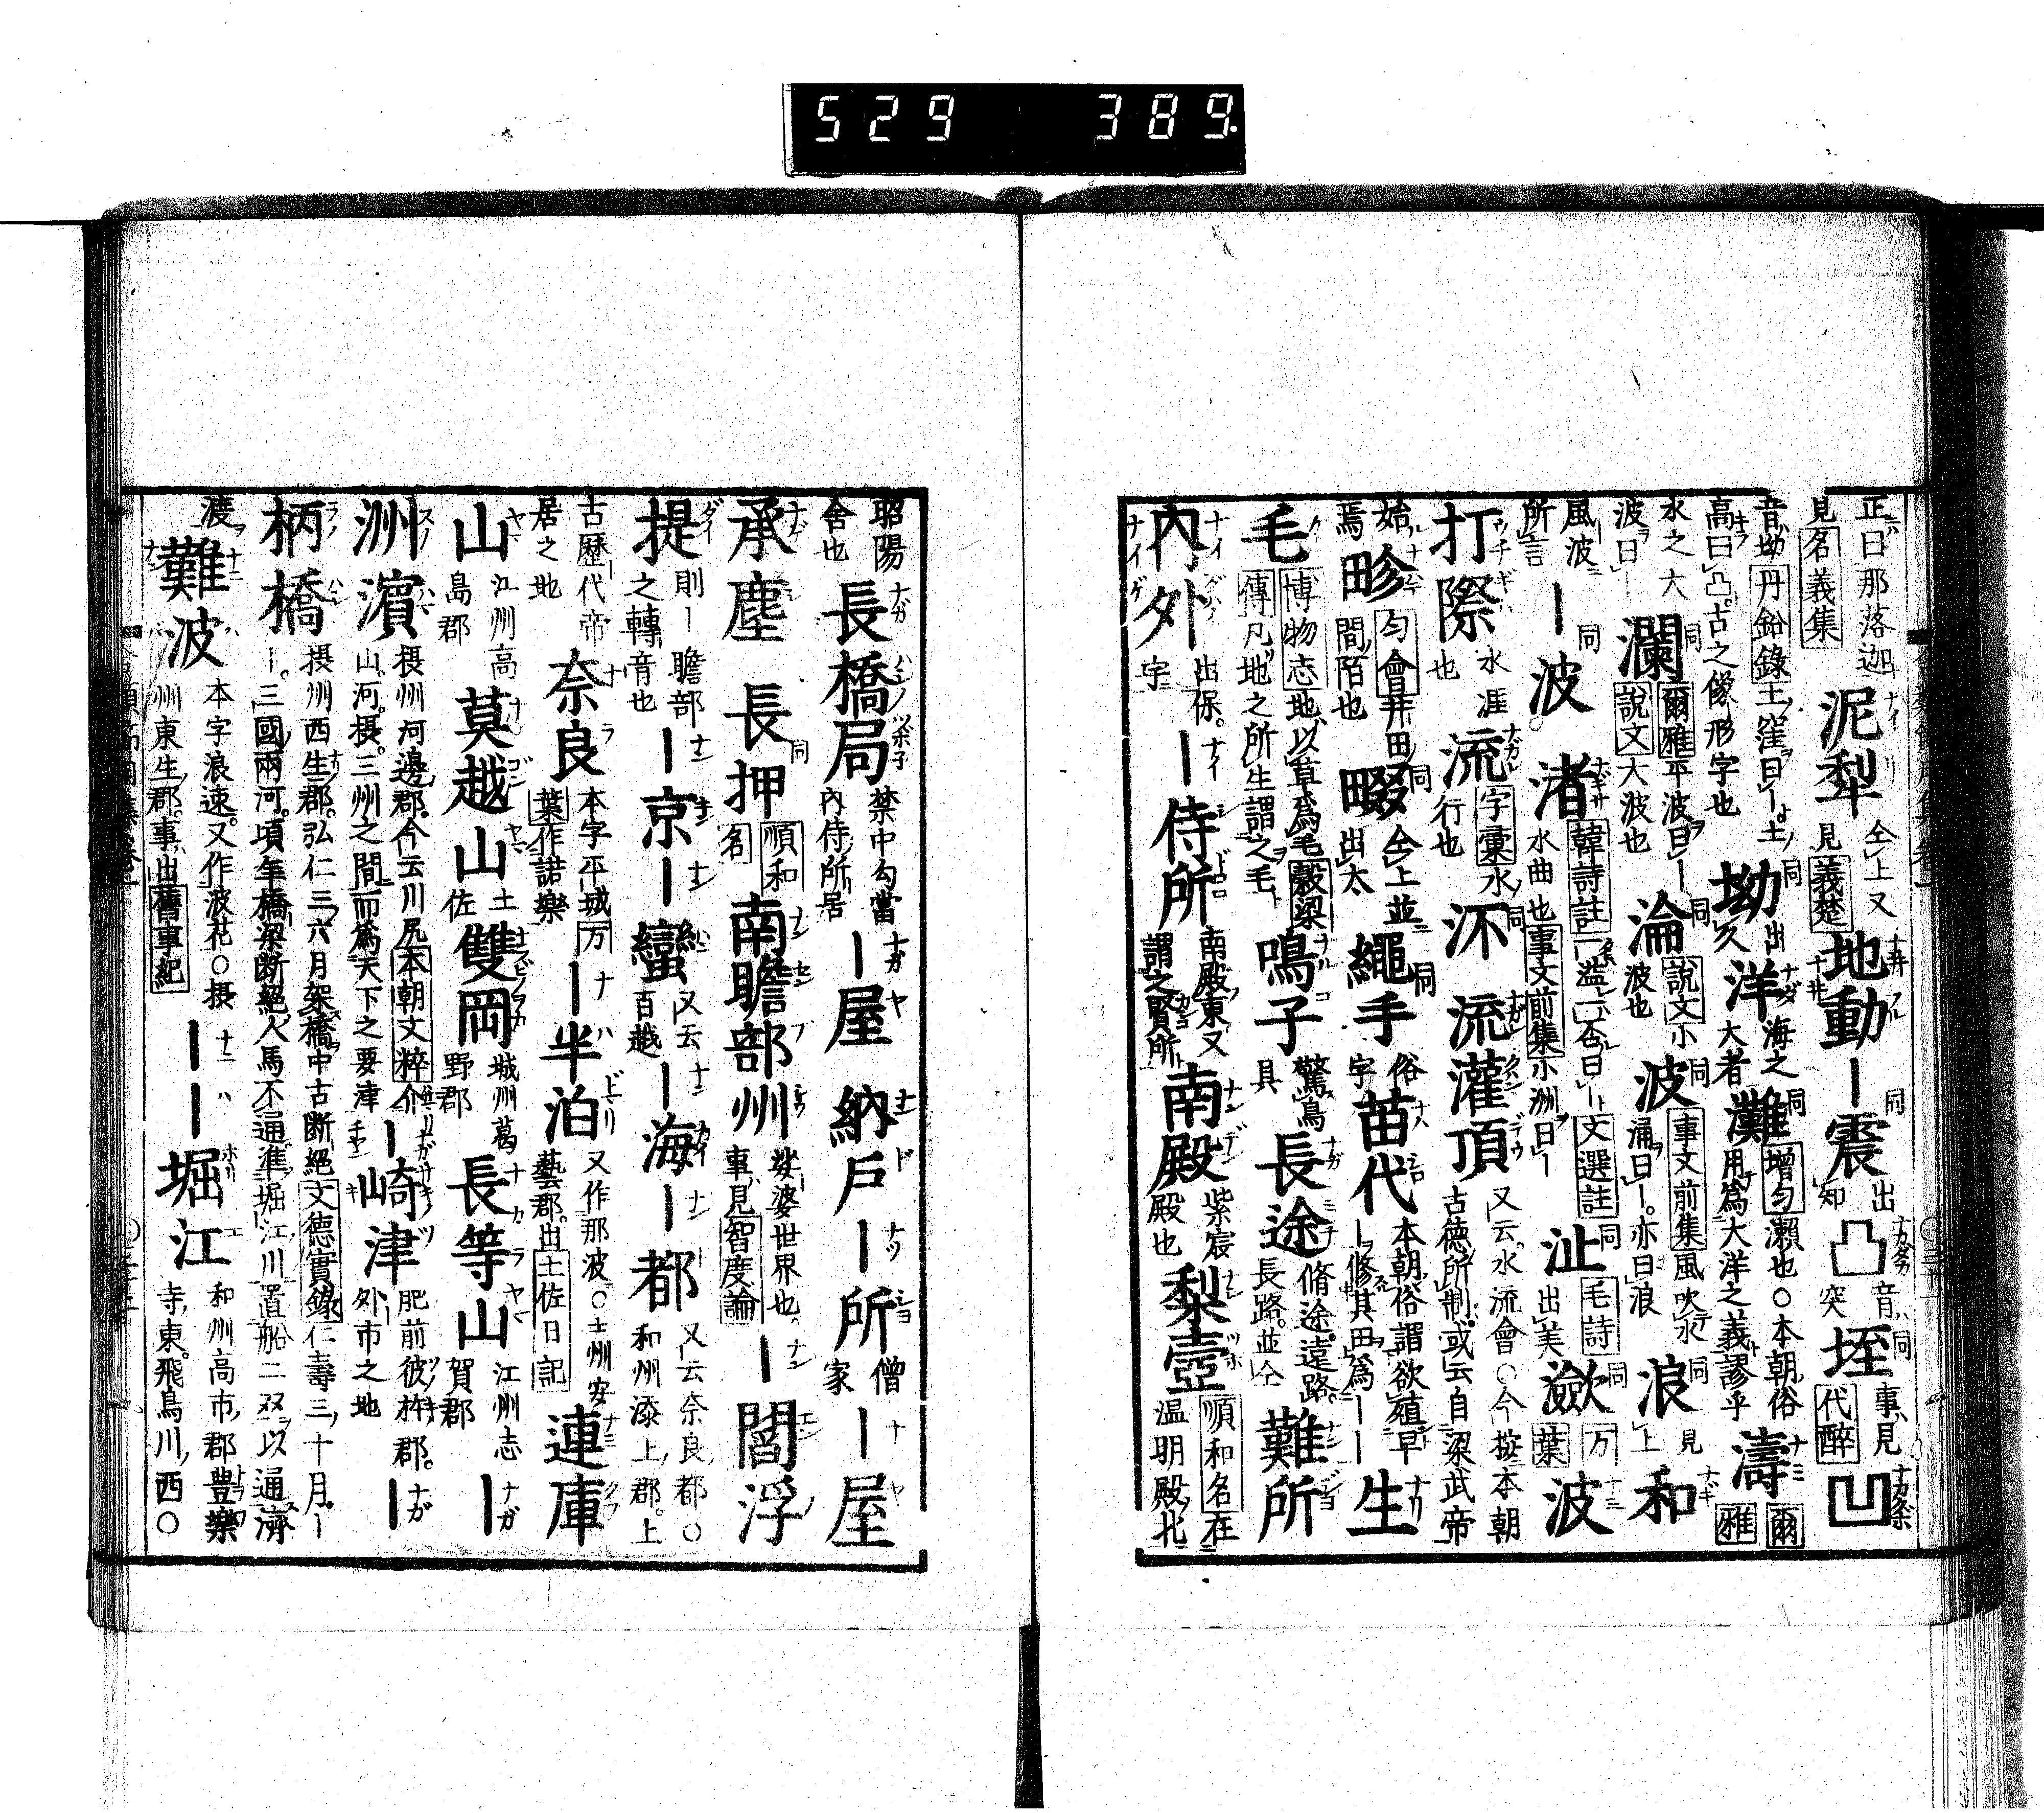 529 389
正曰那落迦見名義集 泥犁仝上又見義楚 地動 ー震出知 凸音突 垤事見代醉 凹
音坳丹鉛錄土窪曰ー土高曰凸古之像形字也 坳出久 洋海之大者 灘增匀瀨也○本朝俗用爲大洋之義謬乎 濤爾雅
水之大波曰ー 瀾爾雅平波曰ー說文大波也 淪說文小波也 波事文前集風吹水涌曰ー亦曰浪 浪見上 和
風波所言 ー波 渚韓詩註一溢一否曰ー文選註水曲也事文前集小洲曰ー 沚毛詩出美 瀲万葉 波
打際水涯也 流字彙水行也 沠 流灌頂又云水流會○今按本朝古德所制或云自梁武帝
始焉 畛匀會井田間陌也 畷仝上並出太 繩手俗字 苗代本朝俗謂欲殖早ー修其田爲ーー 生
毛博物志地以草爲毛穀梁傳凡地之所生謂之毛 鳴子驚鳥具 長途脩途遠路長路並仝 難所
內外出保字 ー侍所南殿東又謂之賢所 南殿紫宸殿也 梨壺順和名在温明殿北
昭陽舍也 長橋局禁中勾當內侍所居 ー屋 納戶 ー所僧家 ー屋
承塵 長押順和名 南瞻部州娑婆世界也事見智度論 ー閻浮
提則ー瞻部之轉音也 ー京 ー蠻又云百越 ー海 ー都又云奈良都○和州添上郡上
古歷代帝居之地 奈良本字平城万葉作諾樂 ー半泊又作那波○土州安藝郡出土佐日記 連庫
山江州高島郡 莫越山土佐 雙岡城州葛野郡 長等山江州志賀郡 ー
洲濱摂州河邊郡今云川尻本朝文粹介山河摂三州之間而爲天下之要津 ー崎津肥前彼杵郡外市之地 ー
柄橋摂州西生郡弘仁三六月架橋中古断絕文德實錄仁壽三十月ーー三國兩河頃年橋梁断絕人馬不通準堀江川置船二双以通濟
渡 難波本字浪速又作波花○摂州東生郡事出舊事紀 ーー堀江和州高市郡豊樂寺東飛鳥川西○